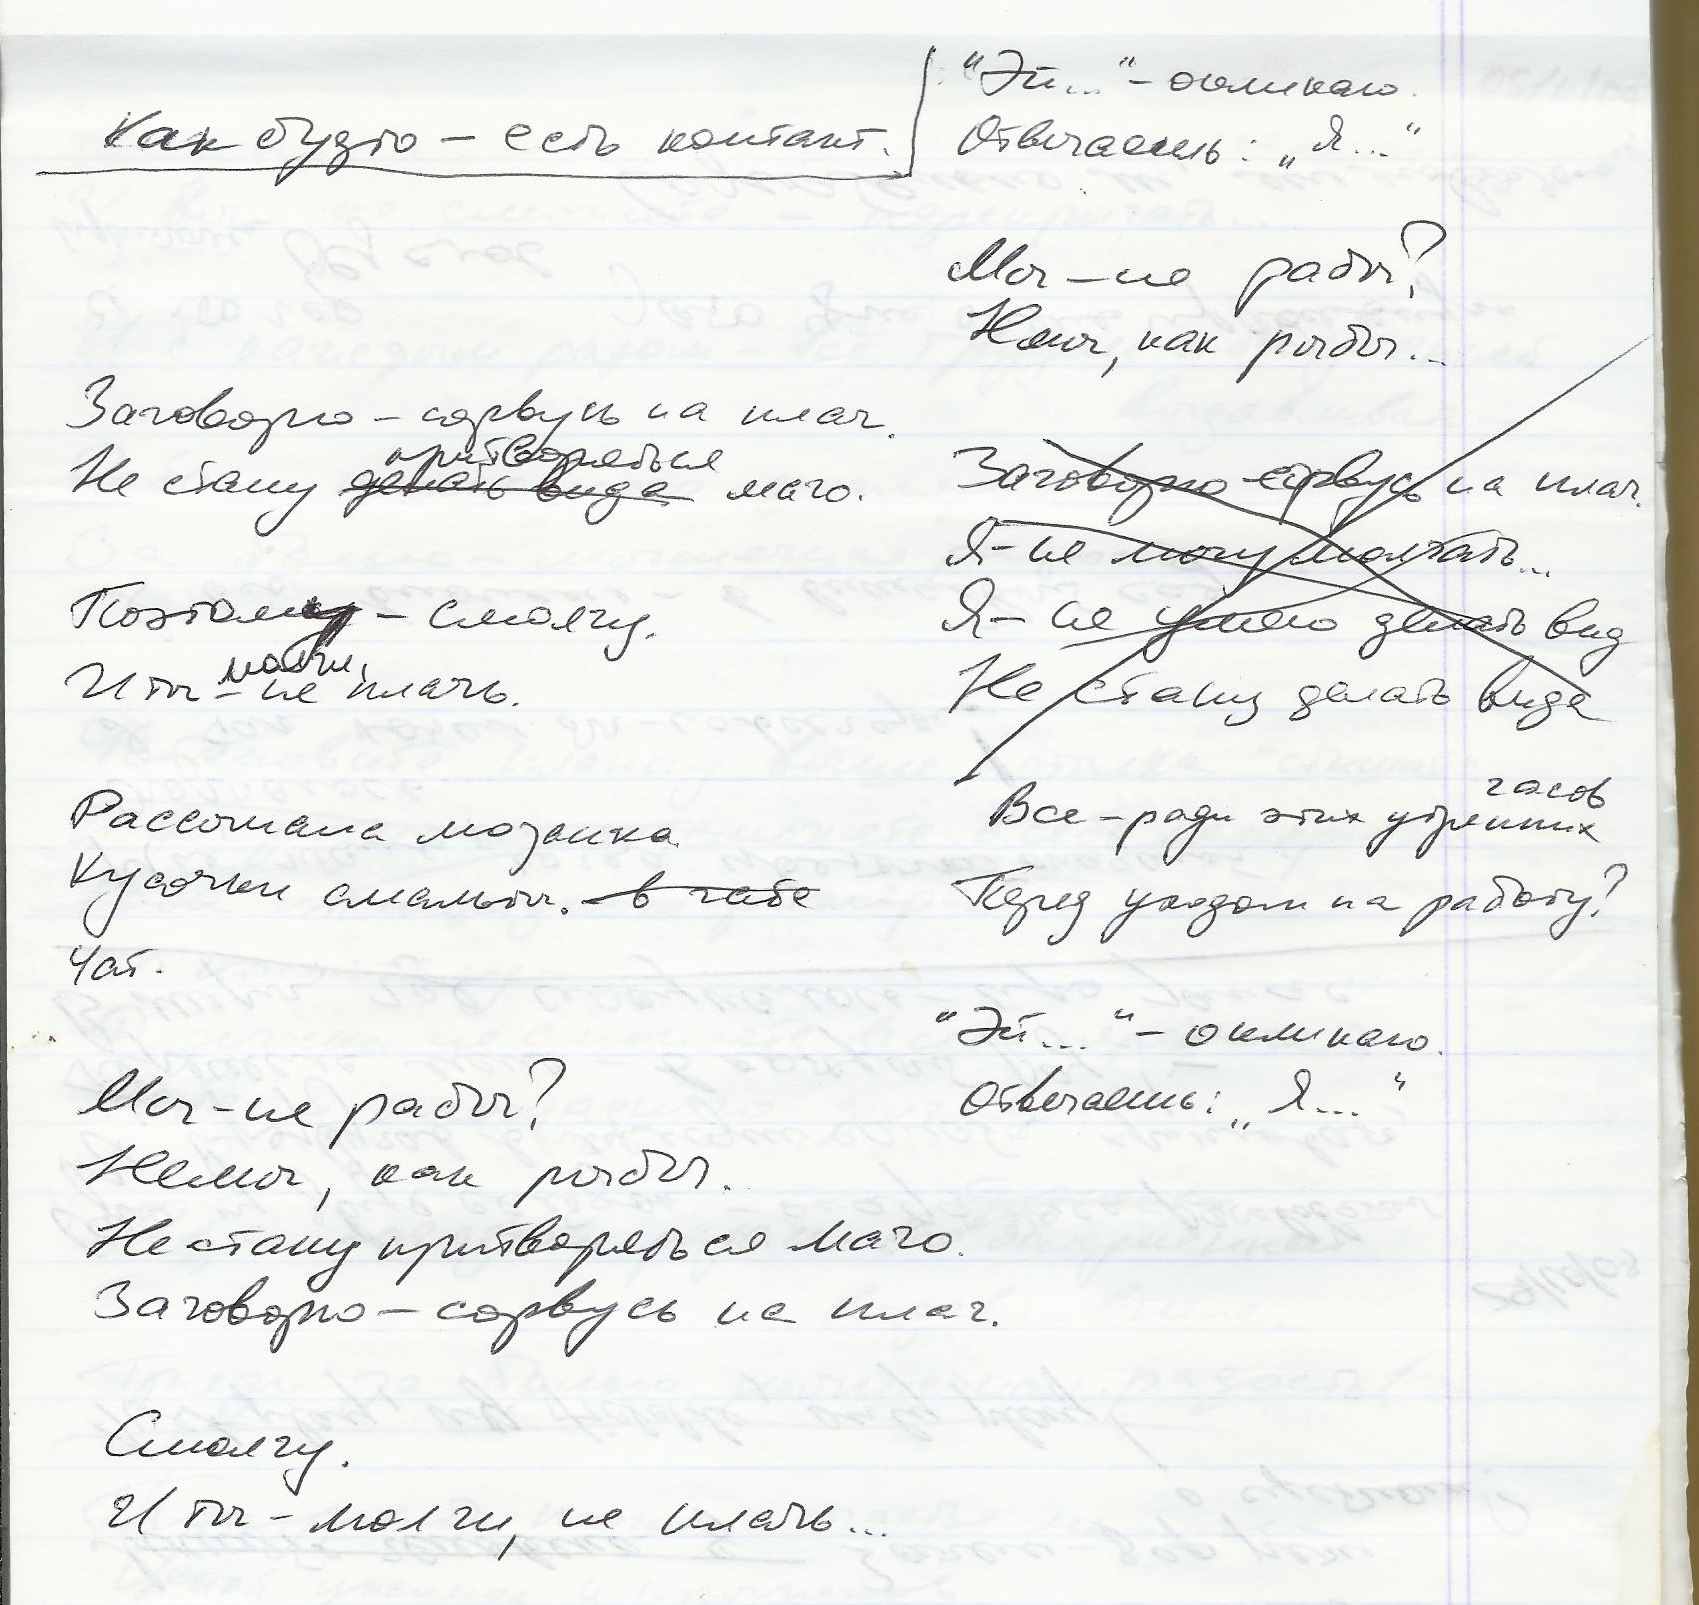 Как будто – есть контакт.
Заговорю – сорвусь на плач.
притворяться
Не стану делать вида мачо.
Поэтому – смолчу.
молчи,
И ты – не плачь.
Рассыпана мозаика
Кусочки смальты. в чате
Чат.
Мы – не рабы?
Немы, как рыбы.
Не стану притворяться мачо.
Заговорю – сорвусь на плач.
Смолчу.
И ты – молчи, не плачь...
"Эй..." – окликаю.
Отвечаешь: „Я..."
Мы – не рабы?
Немы, как рыбы...
Заговорю – сорвусь на плач.
Я – не могу молчать...
Я – не умею делать вид
Не стану делать вида
часов
Все – ради этих утренних
Перед уходом на работу?
"Эй..." – окликаю.
Отвечаешь: „Я..."